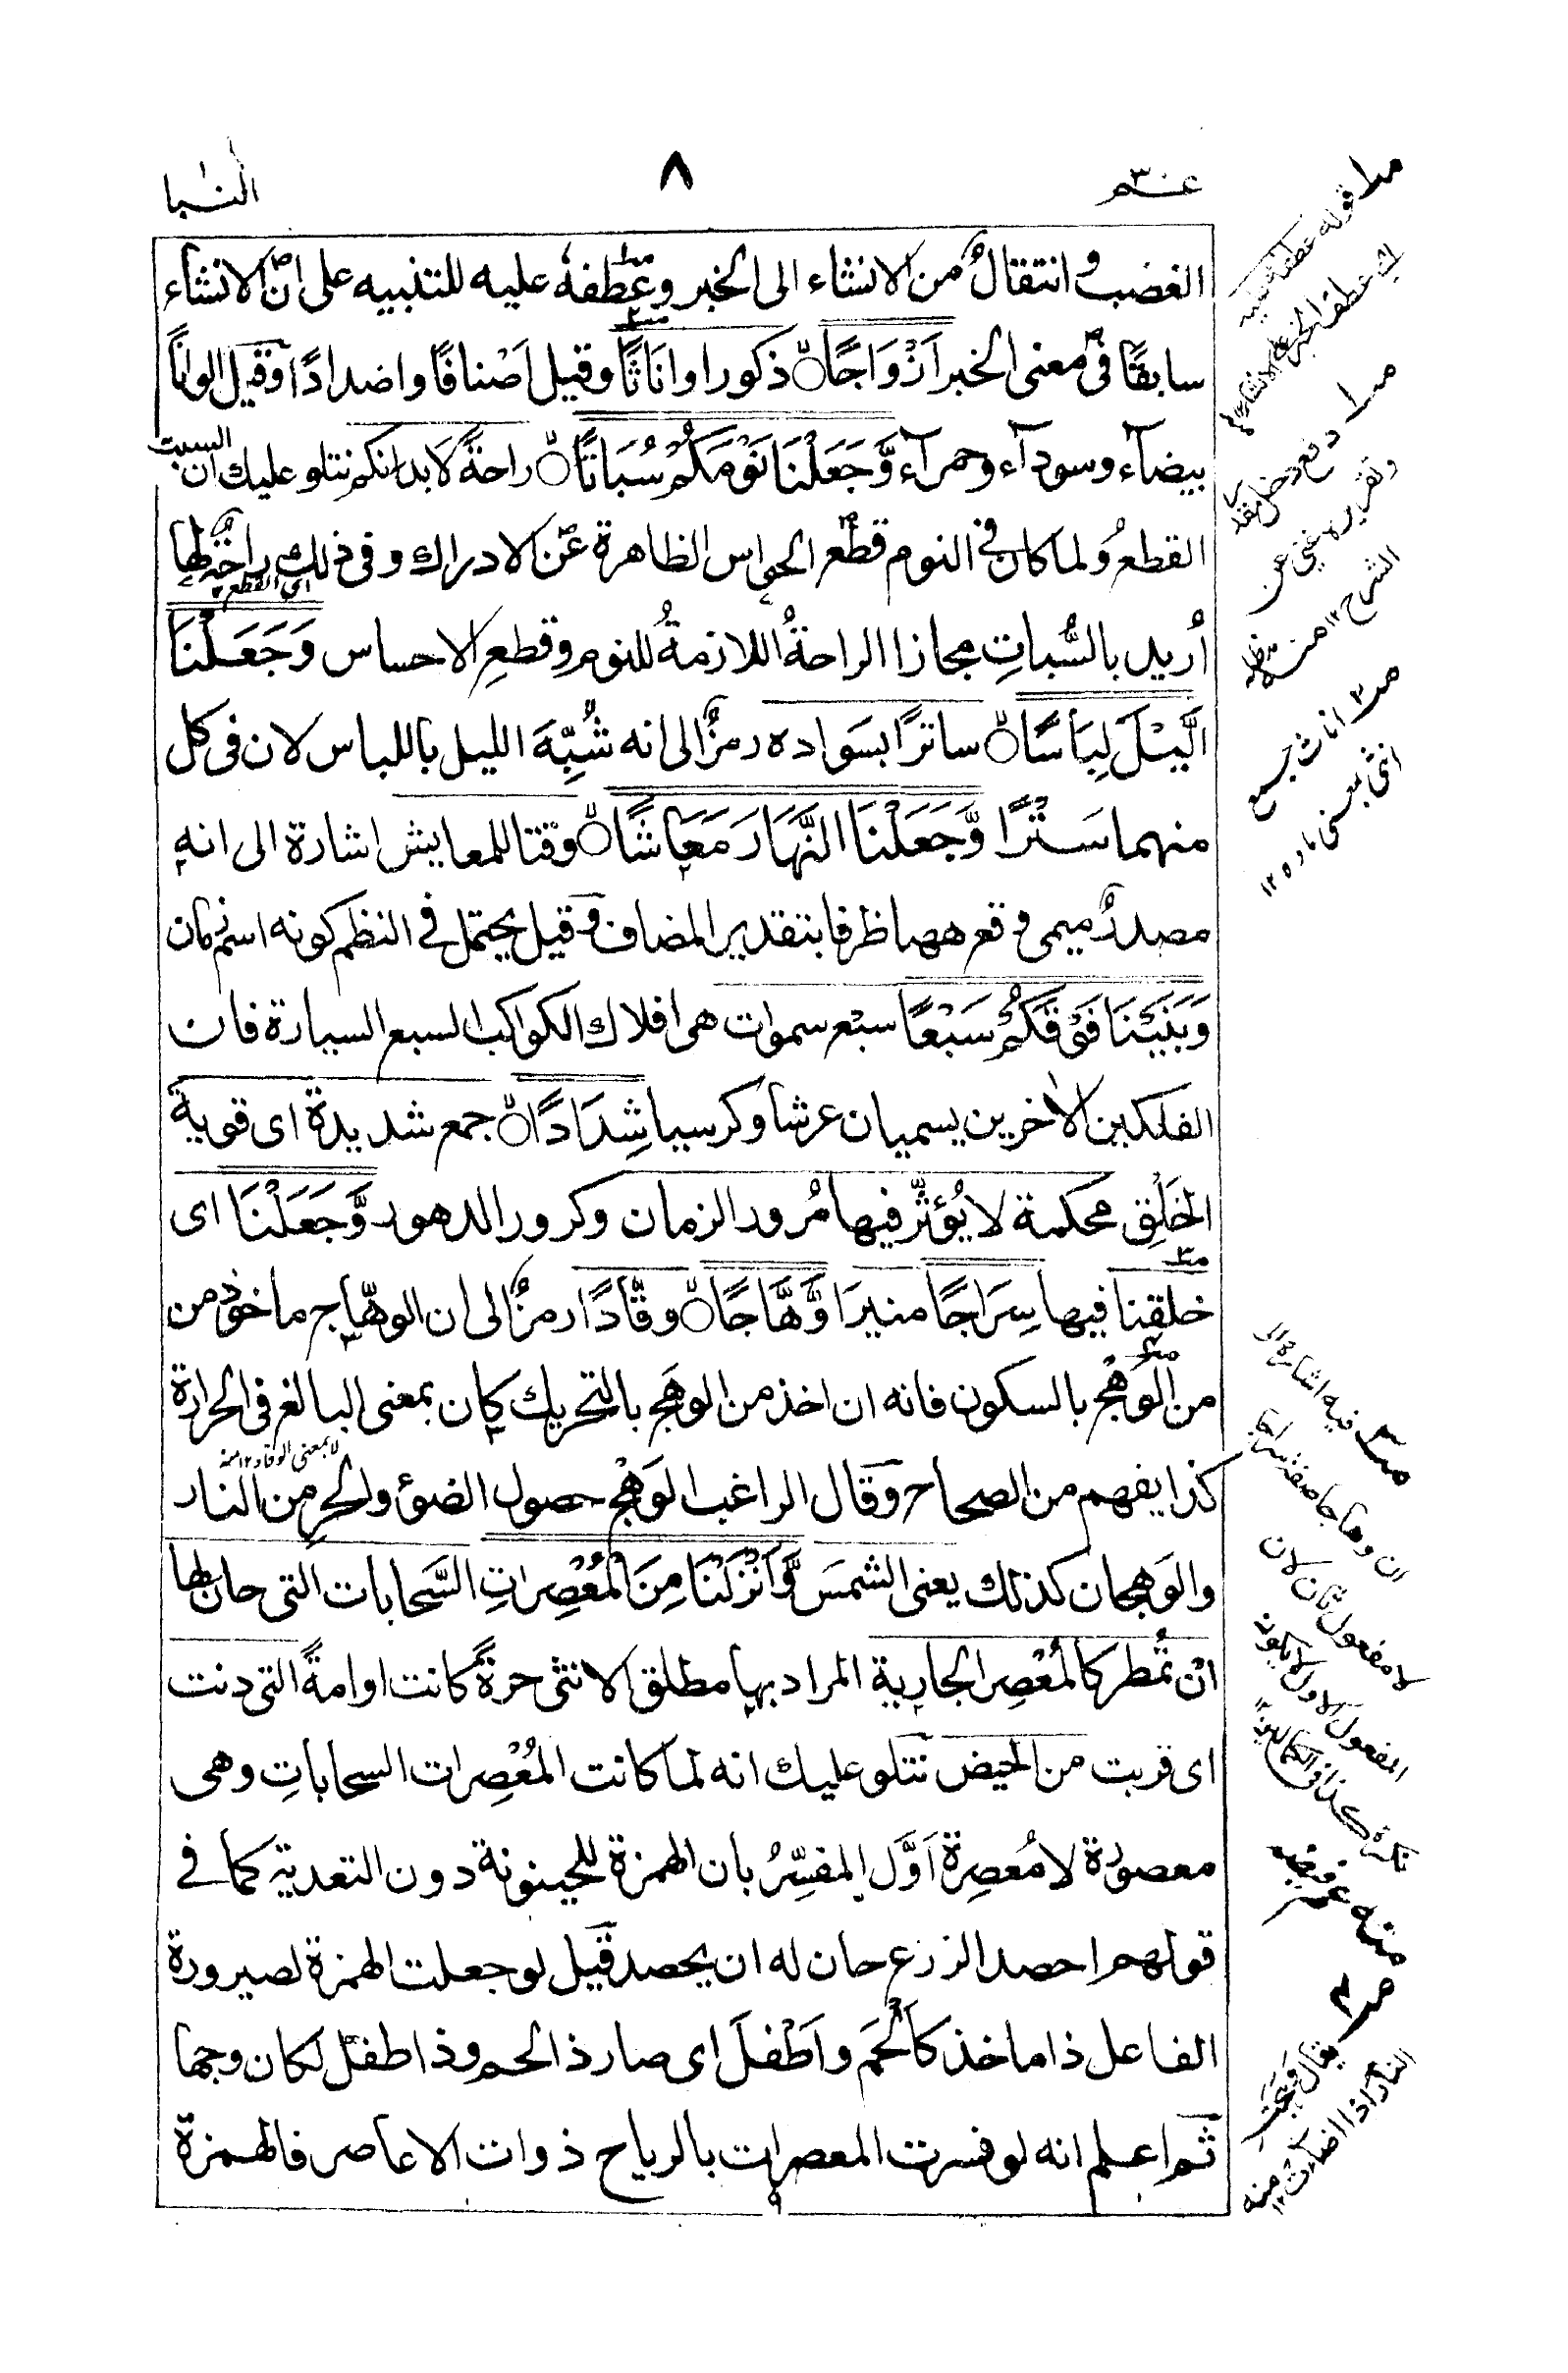 عم ٣٠
٨
النبا
الغضب وانتقالٌ من الانشاء الى الخبر وعطفهٗ عليه للتنبيه على ان الانشاء
سابقًا فى معنى الخبر اَزْوَاجًا۝ ذكورا واناثًا وقيل اَصْنافًا واضدادًا وقيل الوانًا
بيضآء وسودآء وحمرآء وَّجَعَلْنَا نَوْمَكُمْ سُبَاتًا۝ راحةً لابدانكم نتلو عليك ان السبت
القطعُ ولما كان فى النوم قطع الحواس الظاهرة عن الادراك وفى ذلك راحةٌ لها
اى القطع
اُريد بالسُّباتِ مجازا الراحةُ اللازمةُ للنوم وقطعِ الاحساس وَجَعَلْنَا
الَّيْلَ لِبَاسًا۝ ساترًا بسَواده رمزٌ الى انه شُبِّهَ الليل باللباس لان فى كل
منهما سَتْرًا وَّجَعَلْنَا النَّهَارَ مَعَاشًا۝ وقتا للمعايش اشارة الى انه
مصدرٌ ميمى وقع ههنا ظرفا بتقدير المضاف وقيل يحتمل فى النظم كونه اسم زمان
وَبَنَيْنَا فَوْقَكُمْ سَبْعًا سبع سموات هى افلاك الكواكب السبع السيارة فان
الفلكين الاخرين يسميان عرشا وكرسيا شِدَادًا۝ جمع شديدة اى قوية
الخَلْقِ محكمة لا يُؤثّر فيها مُرور الزمان وكرور الدهور وَّجَعَلْنَا اى
خلقنا فيها سِرَاجًا منيرَا وَّهَّاجًا۝ وقّادًا رمزٌ الى ان الوهّاج ماخوذ من
من الوَهْج بالسكون فانه ان اخذ من الوهَج بالتحريك كان بمعنى البالغ فى الحرارة
لا بمعنى الوقاد ١٢ منه
كذا يفهم من الصحاح وقال الراغب الوَهْج حصول الضوء والحرِ من النار
والوَهجان كذلك يعنى الشمسَ وَّاَنْزَلْنَا مِنَ الْمُعْصِرَاتِ السَّحابات التى حان لها
ان تُمطر كالمُعْصِر الجارية المراد بها مطلق الانثى حرةً كانت او امةً التى دنت
اى قربت من الحيض نتلو عليك انه لما كانت المُعْصِرات السحاباتِ وهى
معصورة لا مُعصِرة اَوَّل المفسِّرُ بان الهمزة للحينونة دون التعدية كما فى
قولهم احصد الزرع حان له ان يحصد قيل لو جعلت الهمزة لصيرورة
الفاعل ذا ماخذ كاَلْحَمَ واَطْفلَ اى صار ذا لحم وذا طفل لكان وجها
ثم اعلم انه لو فسرت المعصرات بالرياح ذوات الاعاصر فالهمزة
قوله عطفه عليه
اى عطف الخبر على الانشاء
دفع دخل مقدر
وتقريره غنى عن
الشرح ١٢ منه
اناث جمع
انثى بمعنى ماده ١٢
فيه اشارة الى
ان وهاجا صفة سراجا
لا مفعول ثان لان
المفعول الاول لا يكون
نكرة كذا فى الكمالين
منه
يقال وهجت
النار اذا اضاءت ١٢ منه